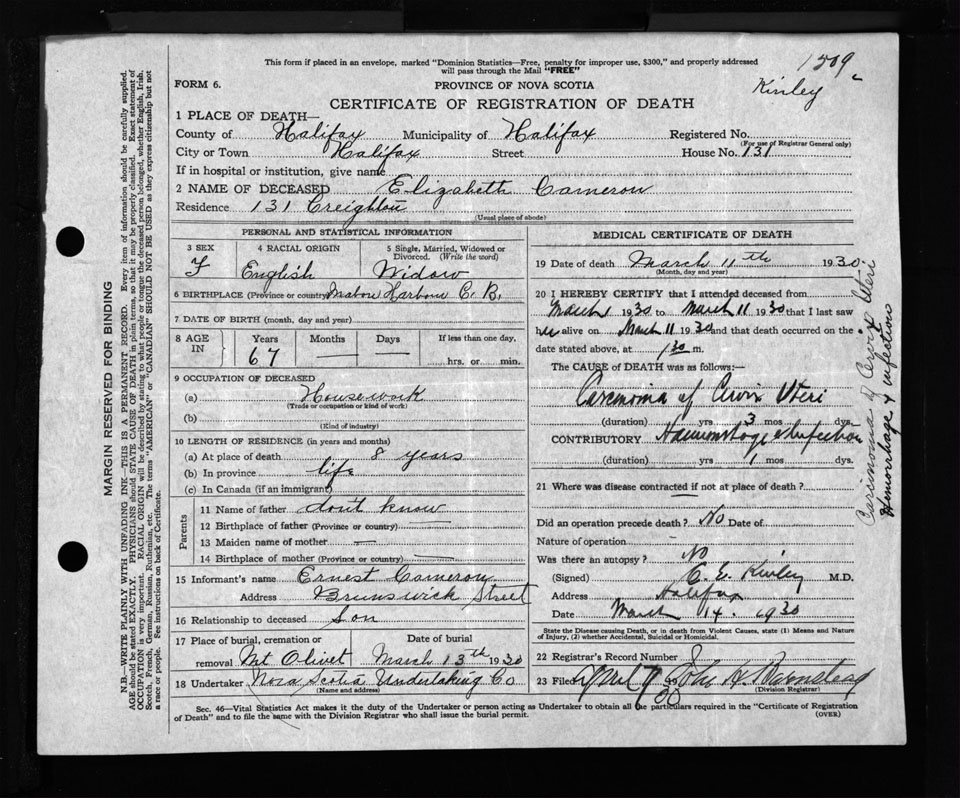 This form if placed in an envelope, marked "Dominion Statistics—Free, penalty for improper use, $300," and properly addressed
will pass through the Mail "FREE"
1509
Kinley
FORM 6.
PROVINCE OF NOVA SCOTIA
CERTIFICATE OF REGISTRATION OF DEATH
1 PLACE OF DEATH—
County of Halifax Municipality of Halifax Registered No.
(For use of Registrar General only)
City or Town Halifax Street House No. 131
If in hospital or institution, give name
2 NAME OF DECEASED Elizabeth Cameron
Residence 131 Creighton
(Usual place of abode)
PERSONAL AND STATISTICAL INFORMATION
3 SEX 4 RACIAL ORIGIN 5 Single, Married, Widowed or
Divorced. (Write the word)
F English Widow
6 BIRTHPLACE (Province or country) Mabou Harbour C. B.
7 DATE OF BIRTH (month, day and year)
8 AGE IN Years Months Days If less than one day,
67 — — hrs. or min.
9 OCCUPATION OF DECEASED
(a) Housework
(Trade or occupation or kind of work)
(b)
(Kind of industry)
10 LENGTH OF RESIDENCE (in years and months)
(a) At place of death 8 years
(b) In province life
(c) In Canada (if an immigrant)
Parents
11 Name of father don't know
12 Birthplace of father (Province or country) —
13 Maiden name of mother —
14 Birthplace of mother (Province or country) —
15 Informant's name Ernest Cameron
Address Brunswick Street
16 Relationship to deceased Son
17 Place of burial, cremation or Date of burial
removal Mt Olivet March 13th 1930
18 Undertaker Nova Scotia Undertaking Co
(Name and address)
MEDICAL CERTIFICATE OF DEATH
19 Date of death March 11th 1930
(Month, day and year)
20 I HEREBY CERTIFY that I attended deceased from
March 1930 to March 11 1930 that I last saw
her alive on March 11 1930 and that death occurred on the
date stated above, at 1 30 m.
The CAUSE of DEATH was as follows:—
Carcinoma of Cervix Uteri
(duration) yrs 3 mos dys.
CONTRIBUTORY Haemorrhage & Infection
(duration) yrs 1 mos dys.
21 Where was disease contracted if not at place of death?
Did an operation precede death? No Date of
Nature of operation
Was there an autopsy? No
(Signed) C. E. Kinley M.D.
Address Halifax
Date March 14. 1930
State the Disease causing Death, or in death from Violent Causes, state (1) Means and Nature
of Injury, (2) whether Accidental, Suicidal or Homicidal.
22 Registrar's Record Number
23 Filed April 7 30 John A Barnstead
(Division Registrar)
Sec. 46—Vital Statistics Act makes it the duty of the Undertaker or person acting as Undertaker to obtain all the particulars required in the "Certificate of Registration
of Death" and to file the same with the Division Registrar who shall issue the burial permit.
(OVER)
Carcinoma of Cervix Uteri
Hemorrhage & infection
MARGIN RESERVED FOR BINDING
N.B.—WRITE PLAINLY WITH UNFADING INK—THIS IS A PERMANENT RECORD. Every item of information should be carefully supplied.
AGE should be stated EXACTLY. PHYSICIANS should STATE CAUSE OF DEATH in plain terms, so that it may be properly classified. Exact statement of
OCCUPATION is very important. RACIAL ORIGIN will be described by stating to what people or tongue the deceased person belonged, whether English, Irish,
Scotch, French, German, Russian, Ruthenian, etc. The terms "AMERICAN" or "CANADIAN" SHOULD NOT BE USED as they express citizenship but not
a race or people. See instructions on back of Certificate.